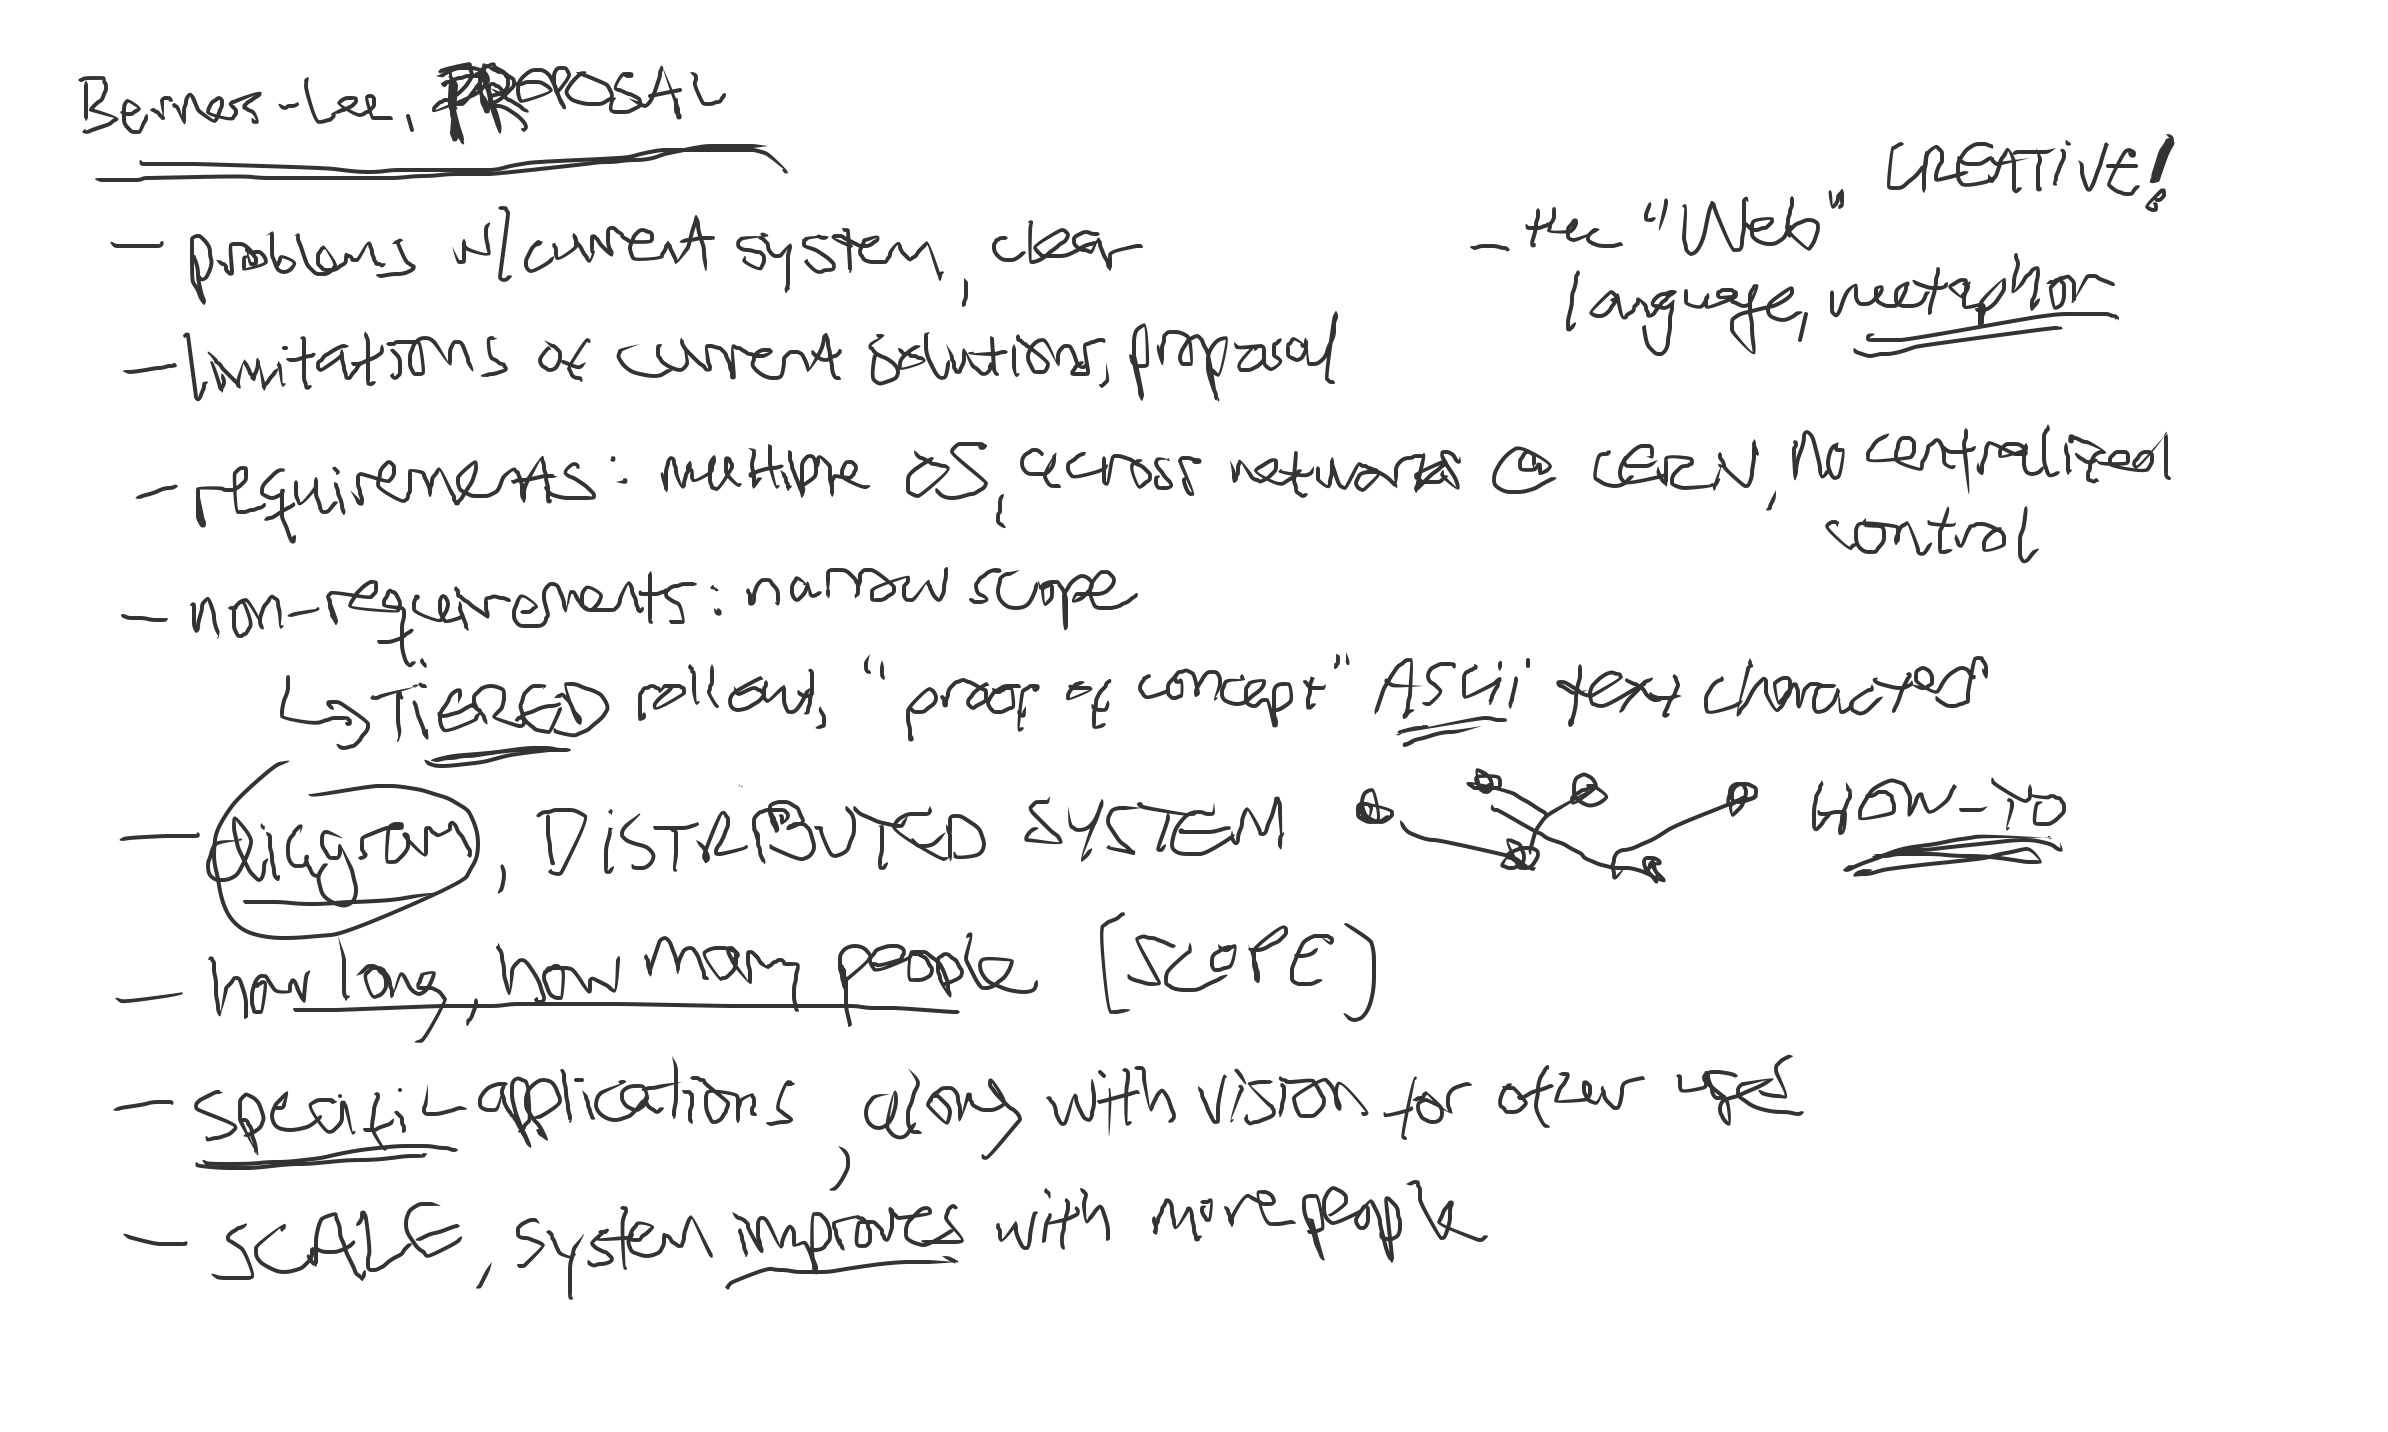 Berners-Lee, PROPOSAL
- problems w/ current system, clear
- the "Web" CREATIVE!
language, metaphor
- limitations of current solutions, proposal
- requirements: multiple OS, across networks @ CERN, no centralized
control
- non-requirements: narrow scope
↳ TiERED rollout, "proof of concept" ASCii text characters
- diagram, DiSTRIBUTED SYSTEM HOW-TO
- how long, how many people [SCOPE]
- specific applications, along with vision for other uses
- SCALE, system improves with more people